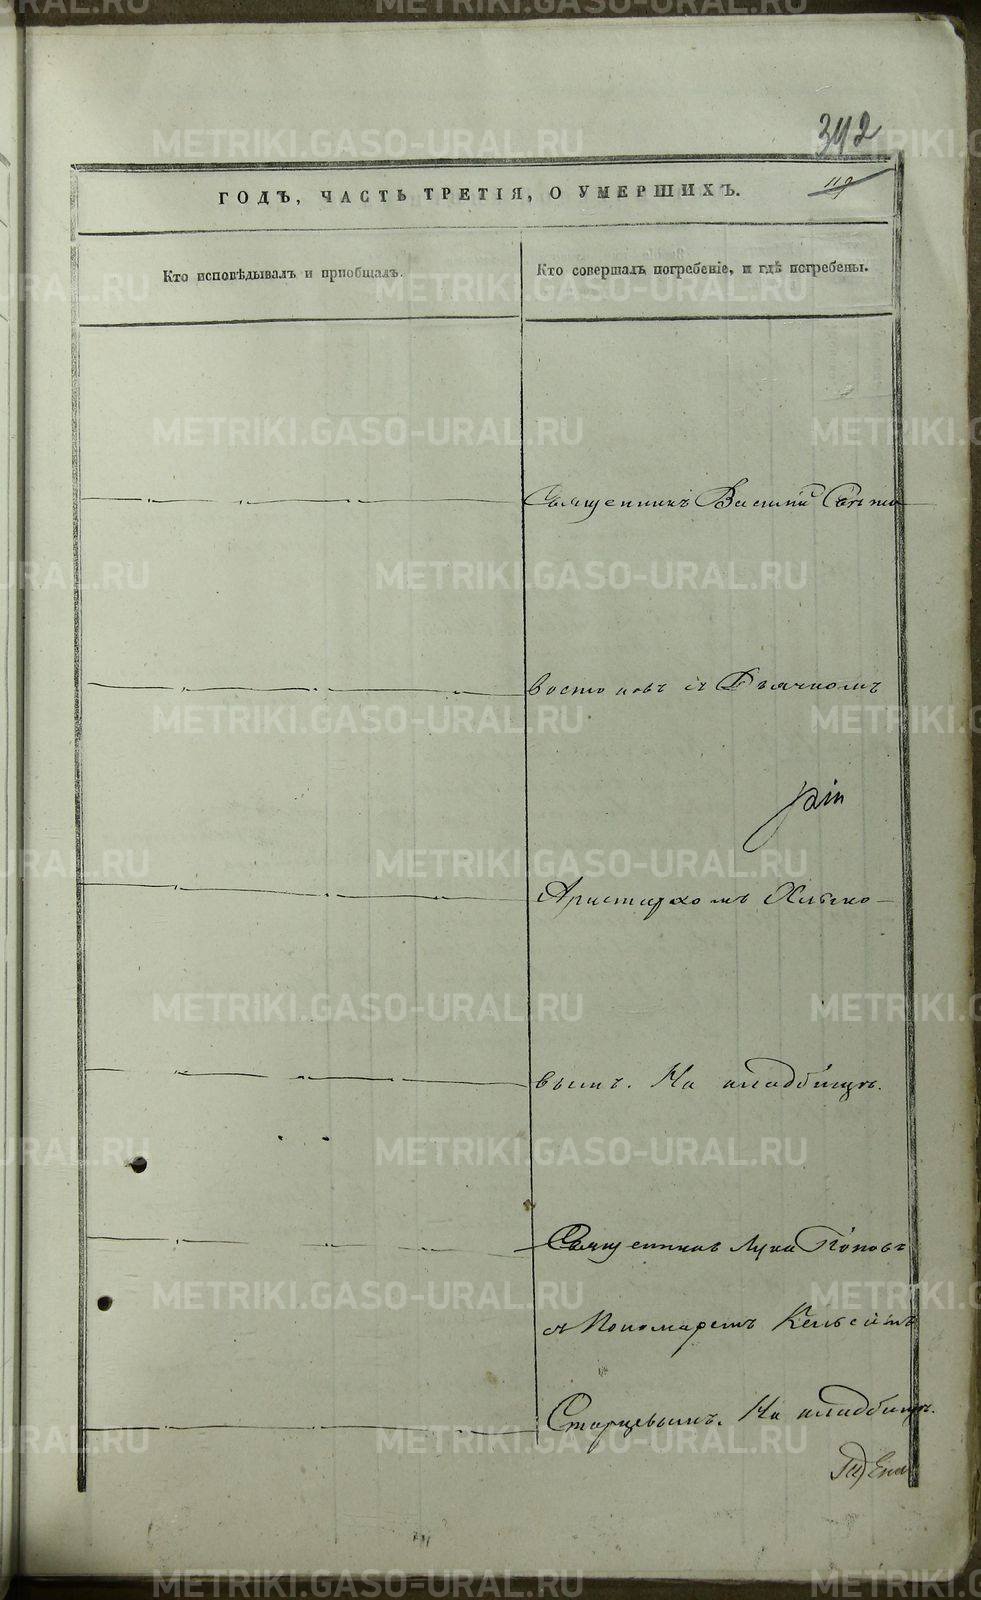 342
119
ГОДЪ, ЧАСТЬ ТРЕТІЯ, О УМЕРШИХЪ.
Кто исповѣдывалъ и пріобщалъ.
Кто совершалъ погребеніе, и гдѣ погребены.
Священникъ Василій
востоковъ съ Дьячкомъ
Аристархомъ Хлѣбно-
вымъ. На кладбищѣ.
Священникъ Лука Поповъ
съ Пономаремъ Кельсіемъ
Старцевымъ. На кладбищѣ.
METRIKI.GASO-URAL.RU